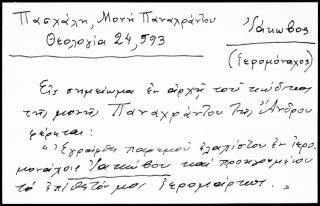 Πασχάλη, Μονή Παναχράντου
Θεολογία 24, 593
Ἰάκωβος
(ἱερομόναχος)
Εἰς σημείωμα ἐν ἀρχῇ τοῦ κώδικος
τῆς μονῆς Παναχράντου τῆς Ἄνδρου
φέρεται:
"Ἐγράφθη παρ' ἐμοῦ ἐλαχίστου ἐν ἱερο-
μονάχοις Ἰακώβου καὶ προηγουμένου
τὸ ἐπίθετόν μοι